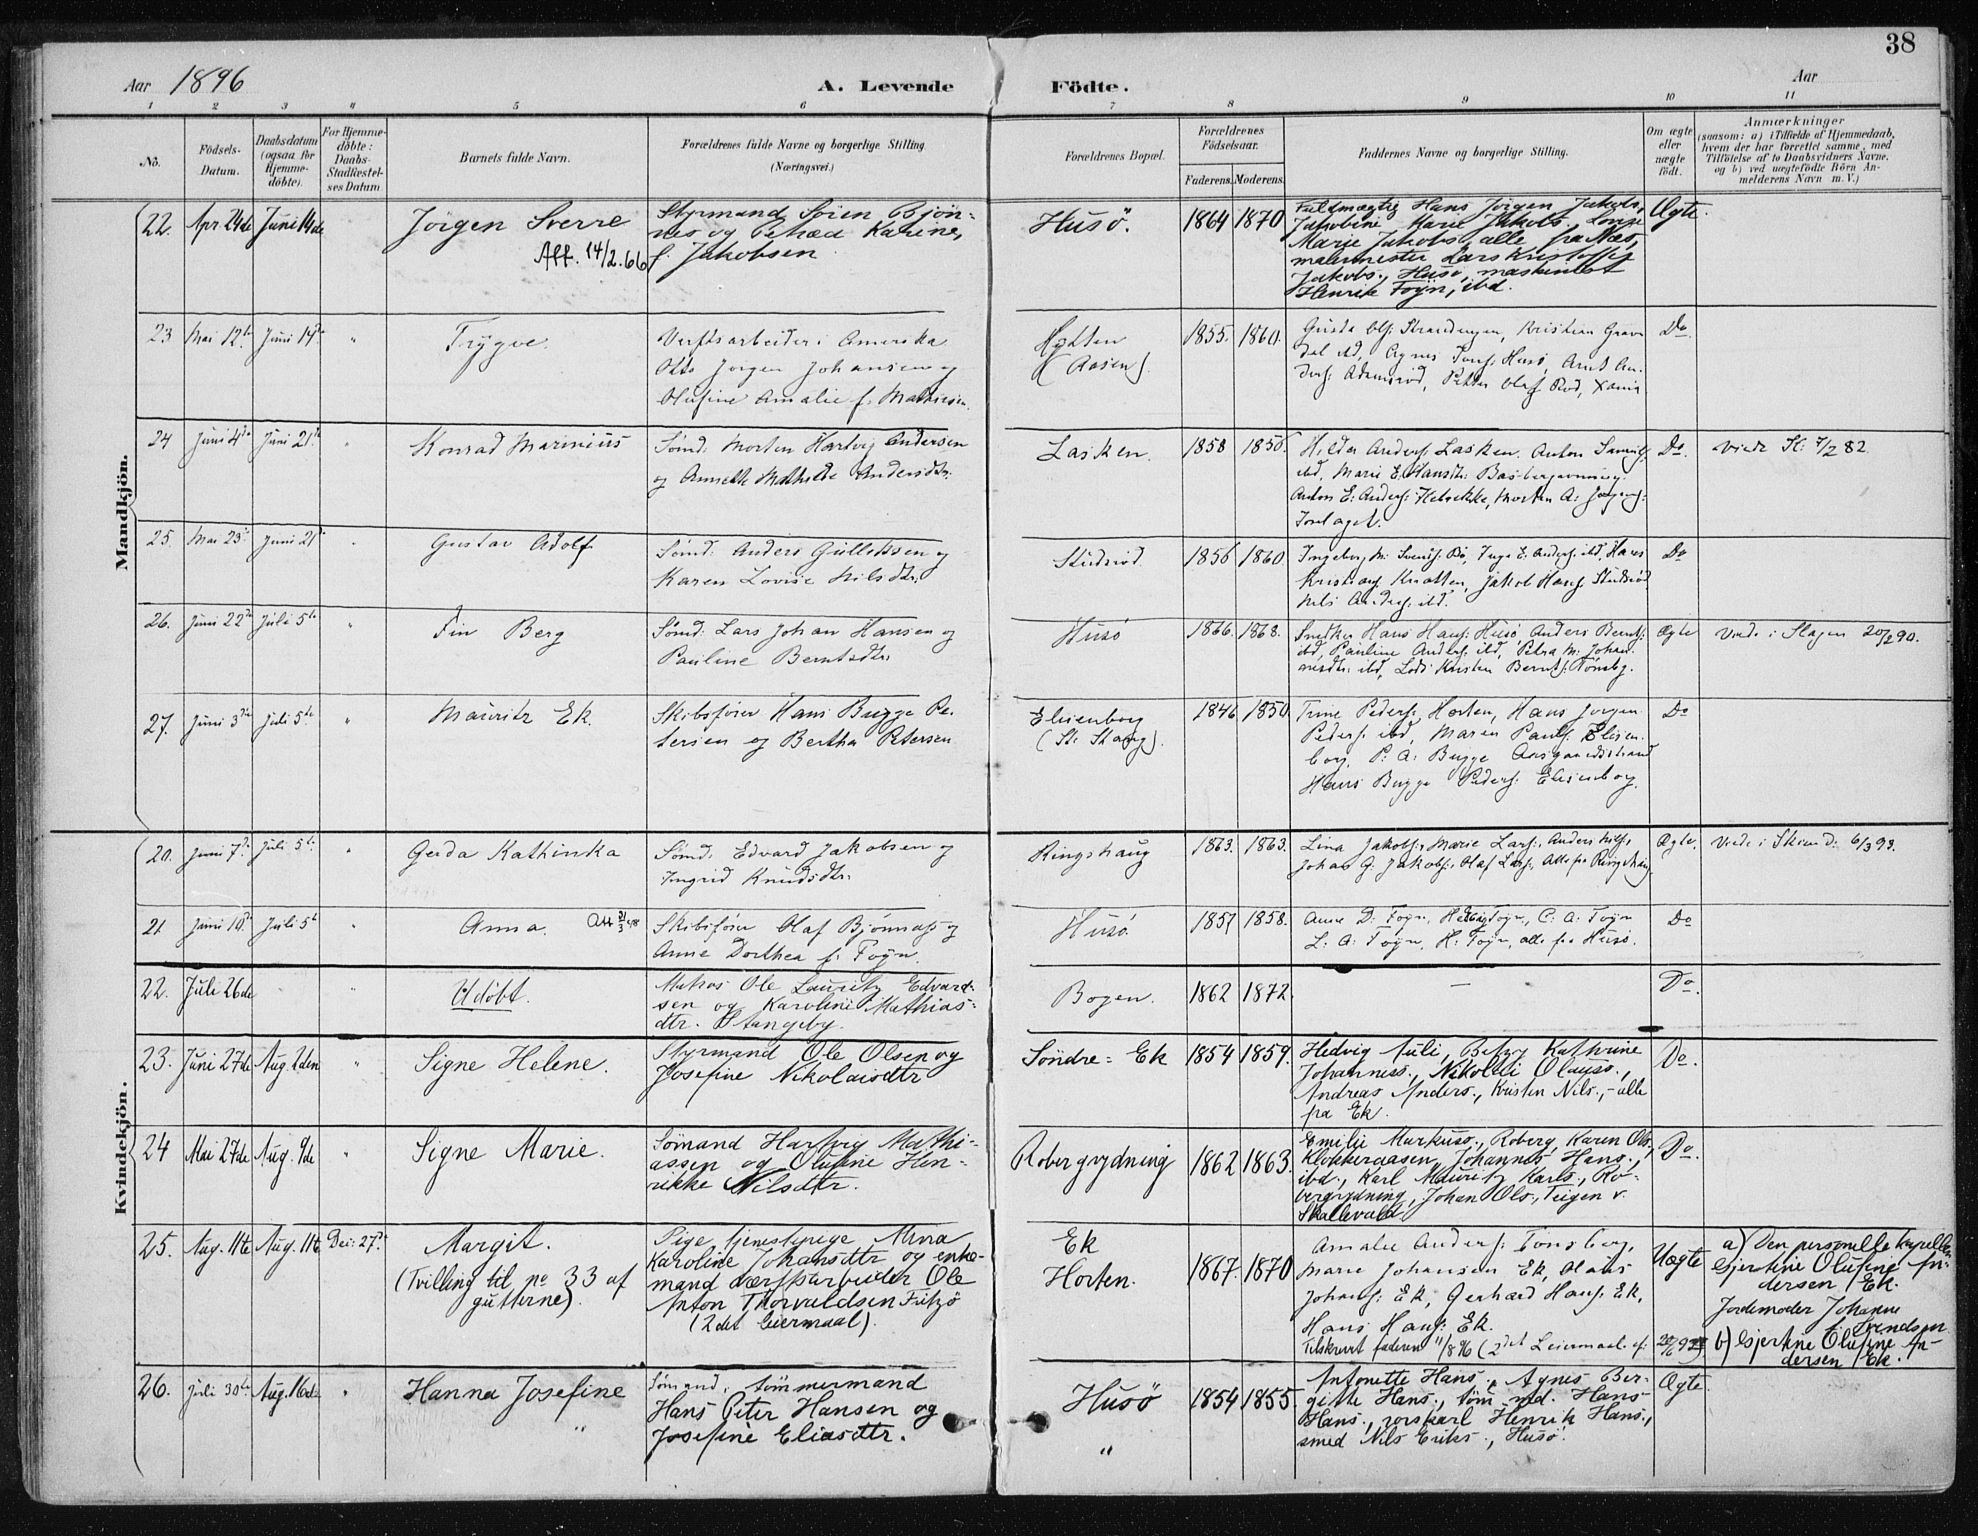 38
Aar 1896
A. Levende Födte.
Aar
1 2 3 4 5 6 7 8 9 10 11
No.
Födsels-
Datum.
Daabsdatum
(ogsaa for
Hjemme-
døbte).
For Hjemme-
døbte:
Daabs-
Stadfæstel-
ses Datum
Barnets fulde Navn.
Forældrenes fulde Navne og borgerlige Stilling
(Næringsvei.)
Forældrenes Bopæl.
Forældrenes
Födselsaar.
Faderens. Moderens.
Faddernes Navne og borgerlige Stilling.
Om ægte
eller
uægte
födt.
Anmærkninger
(saasom: a) i Tilfælde af Hjemmedaab,
hvem der har forrettet samme, med
Tilföielse af to Daabsvidners Navne,
og b) ved uægtefödte Börn An-
melderens Navn m. V.)
Mandkjön.
22. Apr 24de Juni 14de
Jörgen Sverre
Att. 14/2.66
Styrmand Sören Bjön-
nes og Karine,
f. Jakobsen
Husö.
1864 1870
Fuldmægtig Hans Jörgen Jakobs.,
Jakobine Marie Jakobs.,
Marie Jakobs., alle fra Næs,
malermester Lars Kristoffer
Jakobs., Husø, maskinist
Henrik Föyn, ibd.
Ægte.
23 Mai 12te Juni 14de "
Trygve.
Verftsarbeider i Amerika
Otto Jørgen Johansen og
Olufine Amalie f. Mathisen.
Hytten
(Aasen).
1855. 1860.
Kristian Grav
dal ibd, Agnes Husø, Arnt An-
ders: Adamsrød, Petter Olafs. Rød,
Do
24 Juni 4de Juni 21de "
Konrad Marinius
Sømd: Morten Hartvig Andersen
og Annette Mathilde Andersdtr.
Lasken.
1858 1856.
Hilda Anders: Lasken. Anton
ibd, Marie E. Hansdtr:
Anton E: Anders: Morten A:
Do.
Viede Sl: 7/2 82
25. Mai 23de Juni 21de "
Gustav Adolf
Sømd: Anders Gulliksen og
Karen Lovise Nilsdtr.
Studsrød.
1856 1860
Ingeborg M: Svends: Bø, Inga E. Anders: ibd, Hans
Kristians: Knatten, Jakob Hans: Studsrød
Nils Anders: ibd.
Do
26. Juni 22de Juli 5te "
Fin Berg
Sømd: Lars Johan Hansen og
Pauline Berntsdtr:
Husø
1866. 1868.
Snedker Hans Hans: Husø, Anders Bernts:
ibd, Pauline Anders: ibd, Petra M: Johan-
nesdtr: ibd, Lods Kristen Bernts: Tønsbg.
Ægte
Viede i Slagen 20/2 90.
27. Juni 3de Juli 5te "
Mauritz Ek.
Skibsfører Hans Bugge Pe-
tersen og Bertha Petersen
Elisenborg
(St: Stang).
1846 1850
Trine Peders: Horten, Hans Jørgen
Peders: ibd, Maren Pauls: Elisen-
borg. P: A: Bugge Aasgaardstrand
Hans Bugge Peders: Elisenborg.
Do
Kvindekjön.
20. Juni 7de Juli 5te "
Gerda Kathinka
Sømd: Edvard Jakobsen og
Ingrid Knudsdtr:
Ringshaug
1863. 1863.
Lina Jakobs:, Marie Lars:, Anders Nils:,
Johan G. Jakobs:, Olaf Lars:. Alle fra Ringshaug
Ægte.
Viede i Skien D: 6/3 93.
21 Juni 10de Juli 5te "
Anna. Att 31/3 48
Skibsfører Olaf Bjønnæs og
Anne Dorthea f: Foyn.
Husø.
1857 1858.
Anne D: Foyn, Hedvig Foyn, C: A: Foyn
L: A: Foyn, H: Foyn, alle fra Husø.
Do
22. Juli 26de "
Udöbt.
Matros Ole Lauritz Edvard-
sen og Karoline Mathias-
dtr. Stangeby.
Bogen.
1862 1872.
—
Do.
23. Juni 27de Aug. 2den "
Signe Helene.
Styrmand Ole Olsen og
Josefine Nikolaisdtr
Söndre = Ek
1854 1859.
Hedvig Auli, Betzy Kathrine
Johanness., Nikolai Olauss.,
Andreas Anders., Kristen Nils., – alle
fra Ek.
Do.
24 Mai 27de Aug. 9de "
Signe Marie.
Sømand Hartvig Mathi-
assen og Olufine Hen-
rikke Nilsdtr.
Robergrydning
1862 1863.
Emilie Markuss., Roberg, Karen Ols.,
Klokkeraasen, Johannes Hans.,
ibd., Karl Mauritz Karls., Ro-
bergrydning, Johan Ols., Teigen v.
Skallevald.
Do.
25. Aug. 11te Aug. 11te Dec: 27de
Margit.
(Tvilling til no 33 af
gutterne).
Pige, tjenestepige Anna
Karoline Johansdtr og enke-
mand værftsarbeider Ole
Anton Thorvaldsen Fritzö
(2det Leiermaal).
Ek
Horten.
1867. 1870
Amalie Anders: Tønsberg,
Marie Johansen Ek, Hans
Johans: Ek, Gerhard Hans: Ek,
Hans Hans: Ek.
Tilskrevet faderen 11/8 96 (2det Leiermaal.
Uægte
a) Den personelle kapellan.
Gjertine Olufine An-
dersen Ek.
Jordemoder Johanne
Svendsen
b) Gjertine Olufine An-
dersen Ek.
26. Juli 30te Aug. 16de "
Hanna Josefine
"
Sømand, tømmermand
Hans Peter Hansen og
Josefine Eliasdtr.
Husö
"
1854 1855.
Antonette Hans., Agnes Ber-
gitte Hans., tøm md. Hans
Hans., Henrik Hans.,
smed Nils Eriks., Husø.
Ægte.